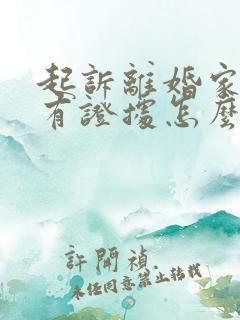 起訴離婚家
有證據怎麼
許開禎
未经同意禁止转载